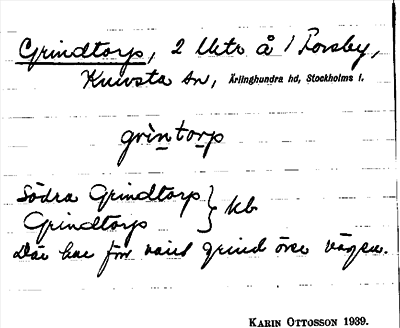 Grindtorp, 2 Utr å 1 Torsby,
Knivsta sn, Ärlinghundra hd, Stockholms l.
grìntorp
Södra Grindtorp } kb
Grindtorp
Där har förr varit grind över vägen.
KARIN OTTOSSON 1939.